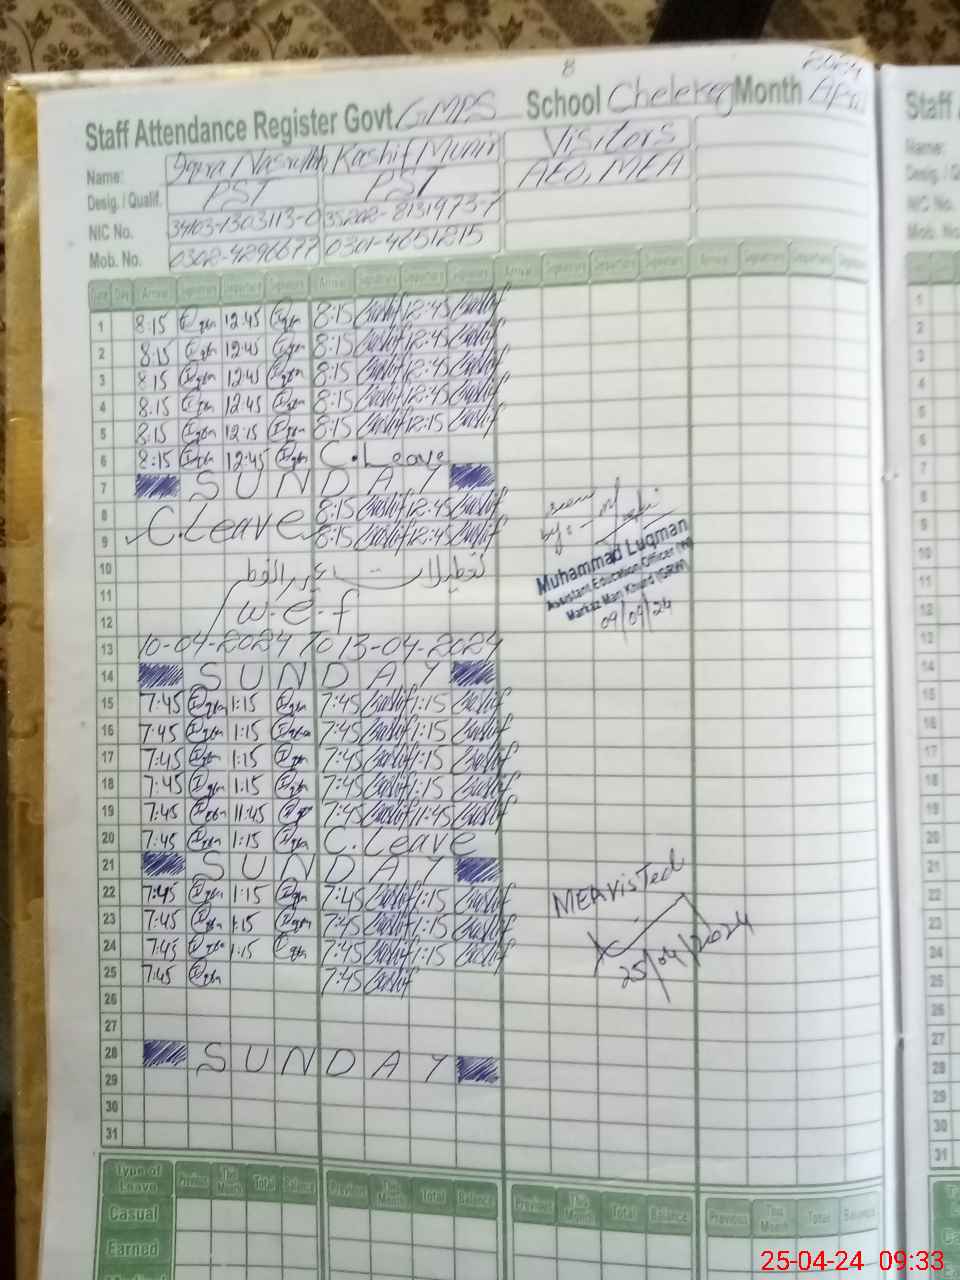 8
2024
Staff Attendance Register Govt. GMPS School Month April
Name: Iqra Nasrullah Kashif Munir Visitors
Desig. / Qualif. PST PST AEO, MEA
NIC No. 34103-1303113-0 35202-8131973-7
Mob. No. 0302-4296677 0301-4651215
Date Day Arrival Signature Departure Signature Arrival Signature Departure Signature Arrival Signature Departure Signature Arrival Signature Departure Signature
1 8:15 Iqra 12:45 Iqra 8:15 Kashif 12:45 Kashif
2 8:15 Iqra 12:45 Iqra 8:15 Kashif 12:45 Kashif
3 8:15 Iqra 12:45 Iqra 8:15 Kashif 12:45 Kashif
4 8:15 Iqra 12:45 Iqra 8:15 Kashif 12:45 Kashif
5 8:15 Iqra 12:15 Iqra 8:15 Kashif 12:15 Kashif
6 8:15 Iqra 12:45 Iqra C.Leave
7 SUNDAY
8 C.Leave 8:15 Kashif 12:45 Kashif
9 8:15 Kashif 12:45 Kashif
by:-
Muhammad Luqman
Assistant Education Officer (M)
Markaz Mari Khurd (GRW)
09/04/24
10 تعطیلات عید الفطر
11
12 w.e.f
13 10-04-2024 To 13-04-2024
14 SUNDAY
15 7:45 Iqra 1:15 Iqra 7:45 Kashif 1:15 Kashif
16 7:45 Iqra 1:15 Iqra 7:45 Kashif 1:15 Kashif
17 7:45 Iqra 1:15 Iqra 7:45 Kashif 1:15 Kashif
18 7:45 Iqra 1:15 Iqra 7:45 Kashif 1:15 Kashif
19 7:45 Iqra 11:45 Iqra 7:45 Kashif 11:45 Kashif
20 7:45 Iqra 1:15 Iqra C.Leave
21 SUNDAY
22 7:45 Iqra 1:15 Iqra 7:45 Kashif 1:15 Kashif
23 7:45 Iqra 1:15 Iqra 7:45 Kashif 1:15 Kashif
24 7:45 Iqra 1:15 Iqra 7:45 Kashif 1:15 Kashif
25 7:45 Iqra 7:45 Kashif
MEA Visited
25/04/2024
26
27
28 SUNDAY
29
30
31
Type of Leave Previous This Month Total Balance Previous This Month Total Balance Previous This Month Total Balance Previous This Month Total Balance
Casual
Earned
25-04-24 09:33